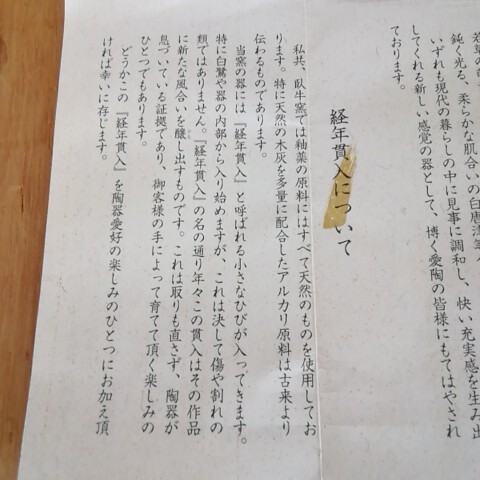 鈍く光る、柔らかな肌合いの白唐津等々
いずれも現代の暮らしの中に見事に調和し、快い充実感を生み出
してくれる新しい感覚の器として、博く愛陶の皆様にもてはやされ
ております。
経年貫入について
私共、臥牛窯では釉薬の原料にはすべて天然のものを使用してお
ります。特に天然の木灰を多量に配合したアルカリ原料は古来より
伝わるものであります。
当窯の器には『経年貫入』と呼ばれる小さなひびが入ってきます。
特に白鷺や器の内部から入り始めますが、これは決して傷や割れの
類ではありません。『経年貫入』の名の通り年々この貫入はその作品
に新たな風合いを醸し出すものです。これは取りも直さず、陶器が
息づいている証拠であり、御客様の手によって育てて頂く楽しみの
ひとつでもあります。
どうかこの『経年貫入』を陶器愛好の楽しみのひとつにお加え頂
ければ幸いに存じます。